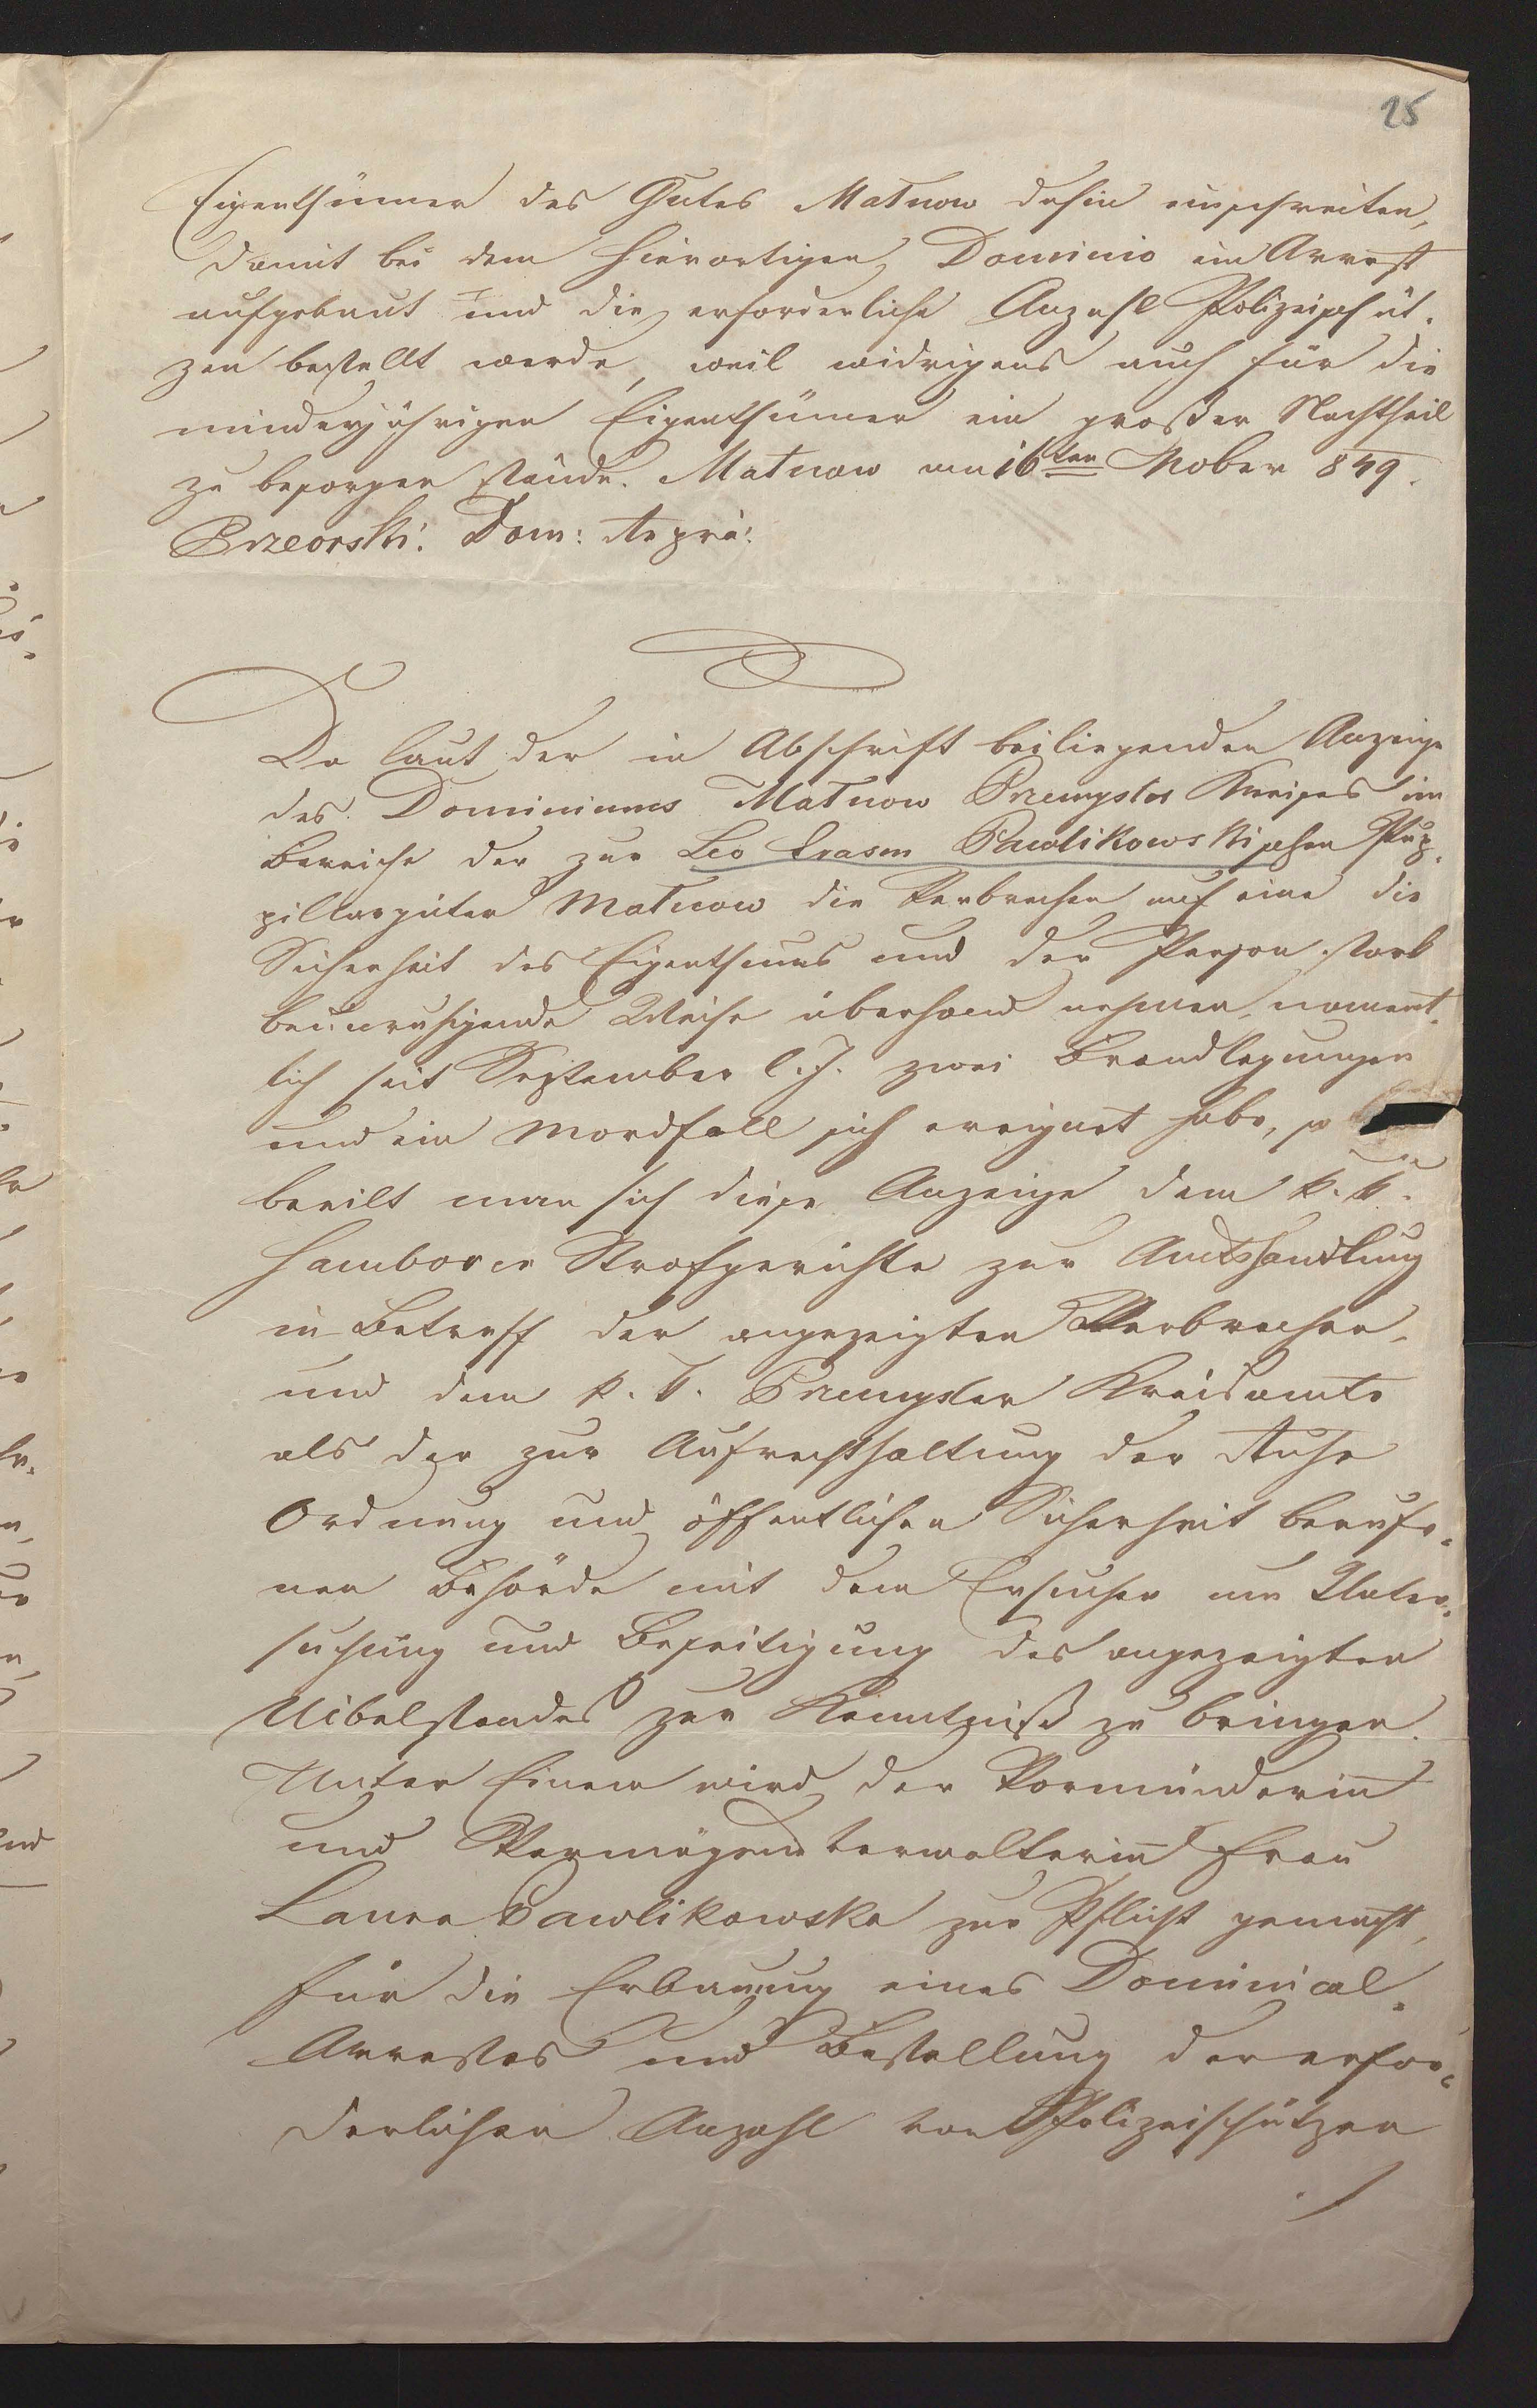 25
Eigenthümer des Gutes Matnow dahin einschreiten,
damit bei dem hierortigen Dominio ein Arrest
aufgebaut und die erforderliche Anzahl Polizeischüt-
zen bestellt werde, weil widrigens auch für die
minderjährigen Eigenthümer ein großer Nachtheil
zu besorgen stände. Matnow am 16ten 849.
Dom:
Da laut der in Abschrift beiliegenden Anzeige
des Dominiums Matnow Przemysler Kreises im
Bereiche der zur Leo Erasm Pawlikowskischen Pup-
pillargüter Matnow die Verbrechen auf eine die
Sicherheit des Eigenthums und der Person stark
beunruhigende Weise überhand nehmen, nament-
lich seit September l. J. zwei Brandlegungen
und ein Mordfall sich ereignet habe, so
beeilt man sich diese Anzeige dem k. k.
Samborer Strafgerichte zur Amtshandlung
in Betreff der angezeigten Verbrechen,
und dem k. k. Przemysler Kreisamte
als der zur Aufrechthaltung der Ruhe
Ordnung und öffentlichen Sicherheit berufe-
nen Behörde mit dem Ersuchen um Unter-
suchung und Beseitigung des angezeigten
Uibelstandes zur Kenntniß zu bringen.
Unter Einem wird der Vormünderin
und Vermögensverwalterin Frau
Laura Pawlikowska zur Pflicht gemacht,
für die Erbauung eines Dominical-
Arrestes und Bestellung der erfor-
derlichen Anzahl von Polizeischützen